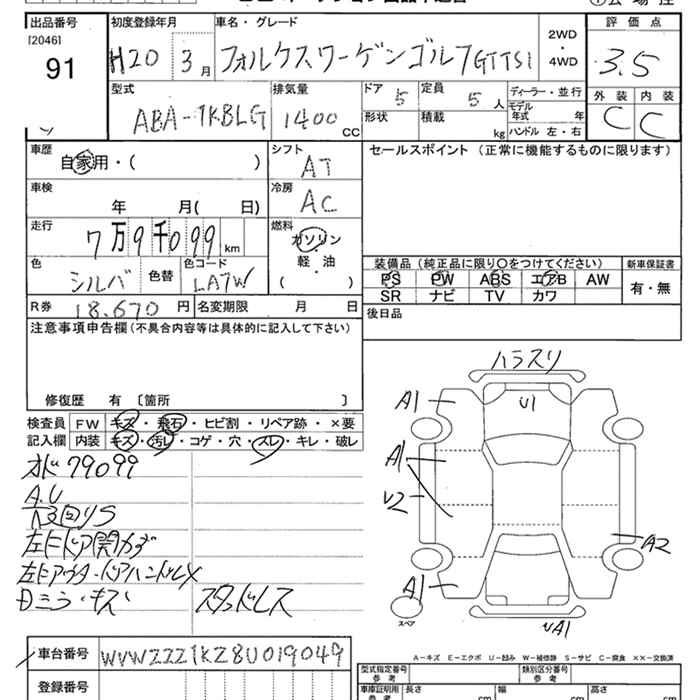 出品番号 初度登録年月 車名・グレード 評価点
[2046]
91 H20 3月 フォルクスワーゲンゴルフGTTSI 2WD・4WD 3.5
型式 排気量 ドア 5 定員 5人 ディーラー・並行 外装 内装
ABA-1KBLG 1400cc 形状 積載 kg モデル年式 年 C C
ハンドル 左・右
車歴 シフト セールスポイント (正常に機能するものに限ります)
自家用・( ) AT
車検 冷房
年 月( 日) AC
走行 燃料
7万9千099km ガソリン
色 色替 色コード 軽・油 装備品 (純正品に限り○をつけてください) 新車保証書
シルバ LA7W ( ・ ) PS PW ABS エアB AW 有・無
SR ナビ TV カワ
R券 18.670円 名変期限 月 日 後日品
注意事項申告欄(不具合内容等は具体的に記入して下さい)
修復歴 有 [箇所 ]
ハラスリ
A1 U1
検査員 FW キズ・飛石・ヒビ割・リペア跡・×要
記入欄 内装 キズ・汚レ・コゲ・穴・スレ・キレ・破レ
オド79099
A1
A.U
U2
下回りS
左FドアA開カず
A2
左Fアウタードアハンドル✕
Dミラーキズ スタッドレス
A1
スペア
UA1
車台番号 WVWZZZ1KZ8U019049
A-キズ E-エクボ U-凹み W-補修跡 S-サビ C-腐食 ××-交換済
登録番号 型式指定番号 参考 類別区分番号 参考
車庫証明用 参考 長さ cm 幅 cm 高さ cm